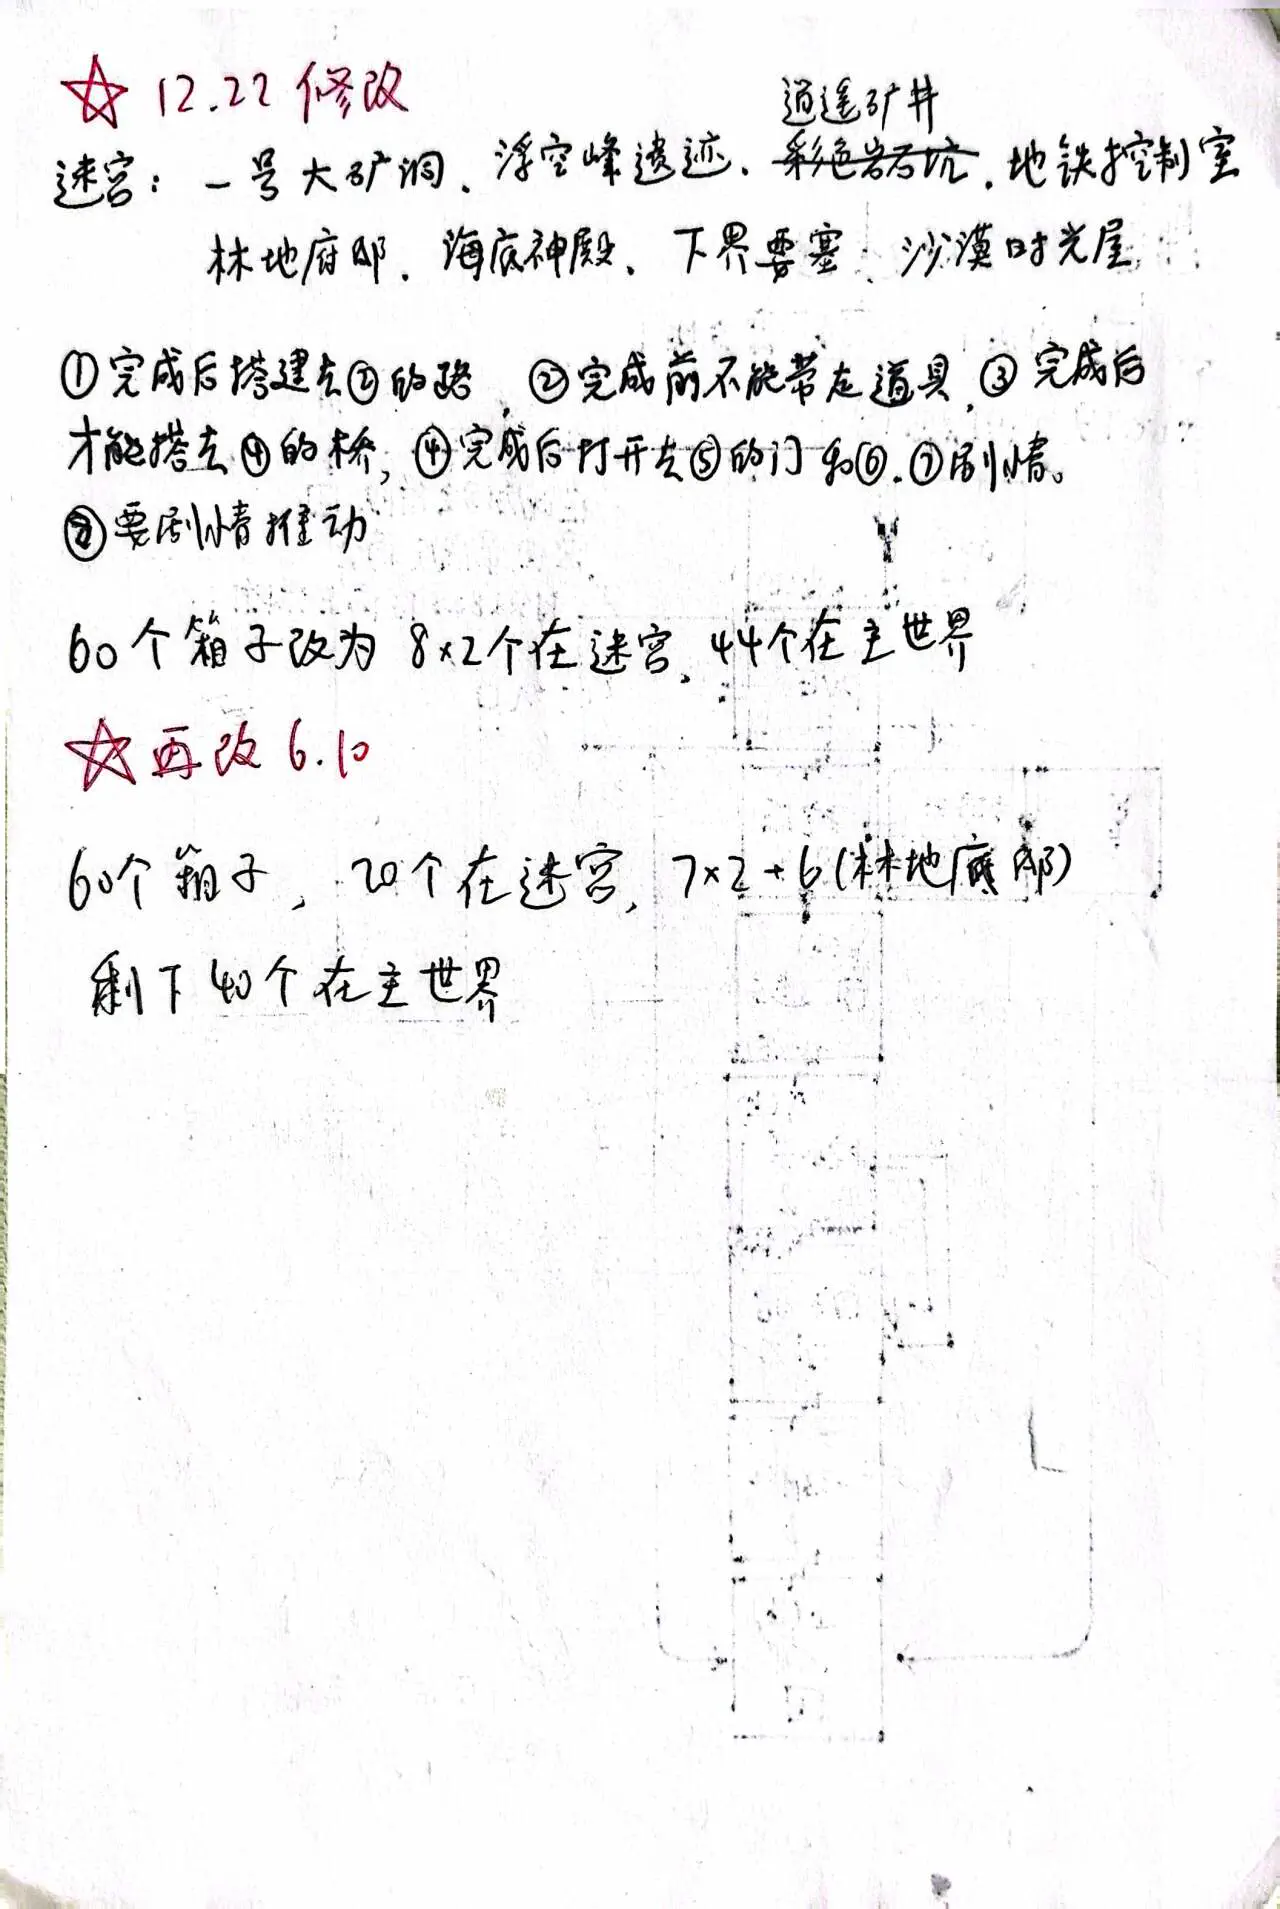 ☆ 12.22 修改
逍遥矿井
迷宫：一号大矿洞、浮空峰遗迹、彩色岩石坑、地铁控制室
林地府邸、海底神殿、下界要塞、沙漠时光屋
①完成后搭建去②的路，②完成前不能带走道具，③完成后
才能搭去④的桥，④完成后打开去⑤的门和⑥.⑦剧情。
要剧情推动
60个箱子改为 8×2个在迷宫，44个在主世界
☆ 再改 6.10
60个箱子，20个在迷宫，7×2+6(林地底邸)
剩下40个在主世界